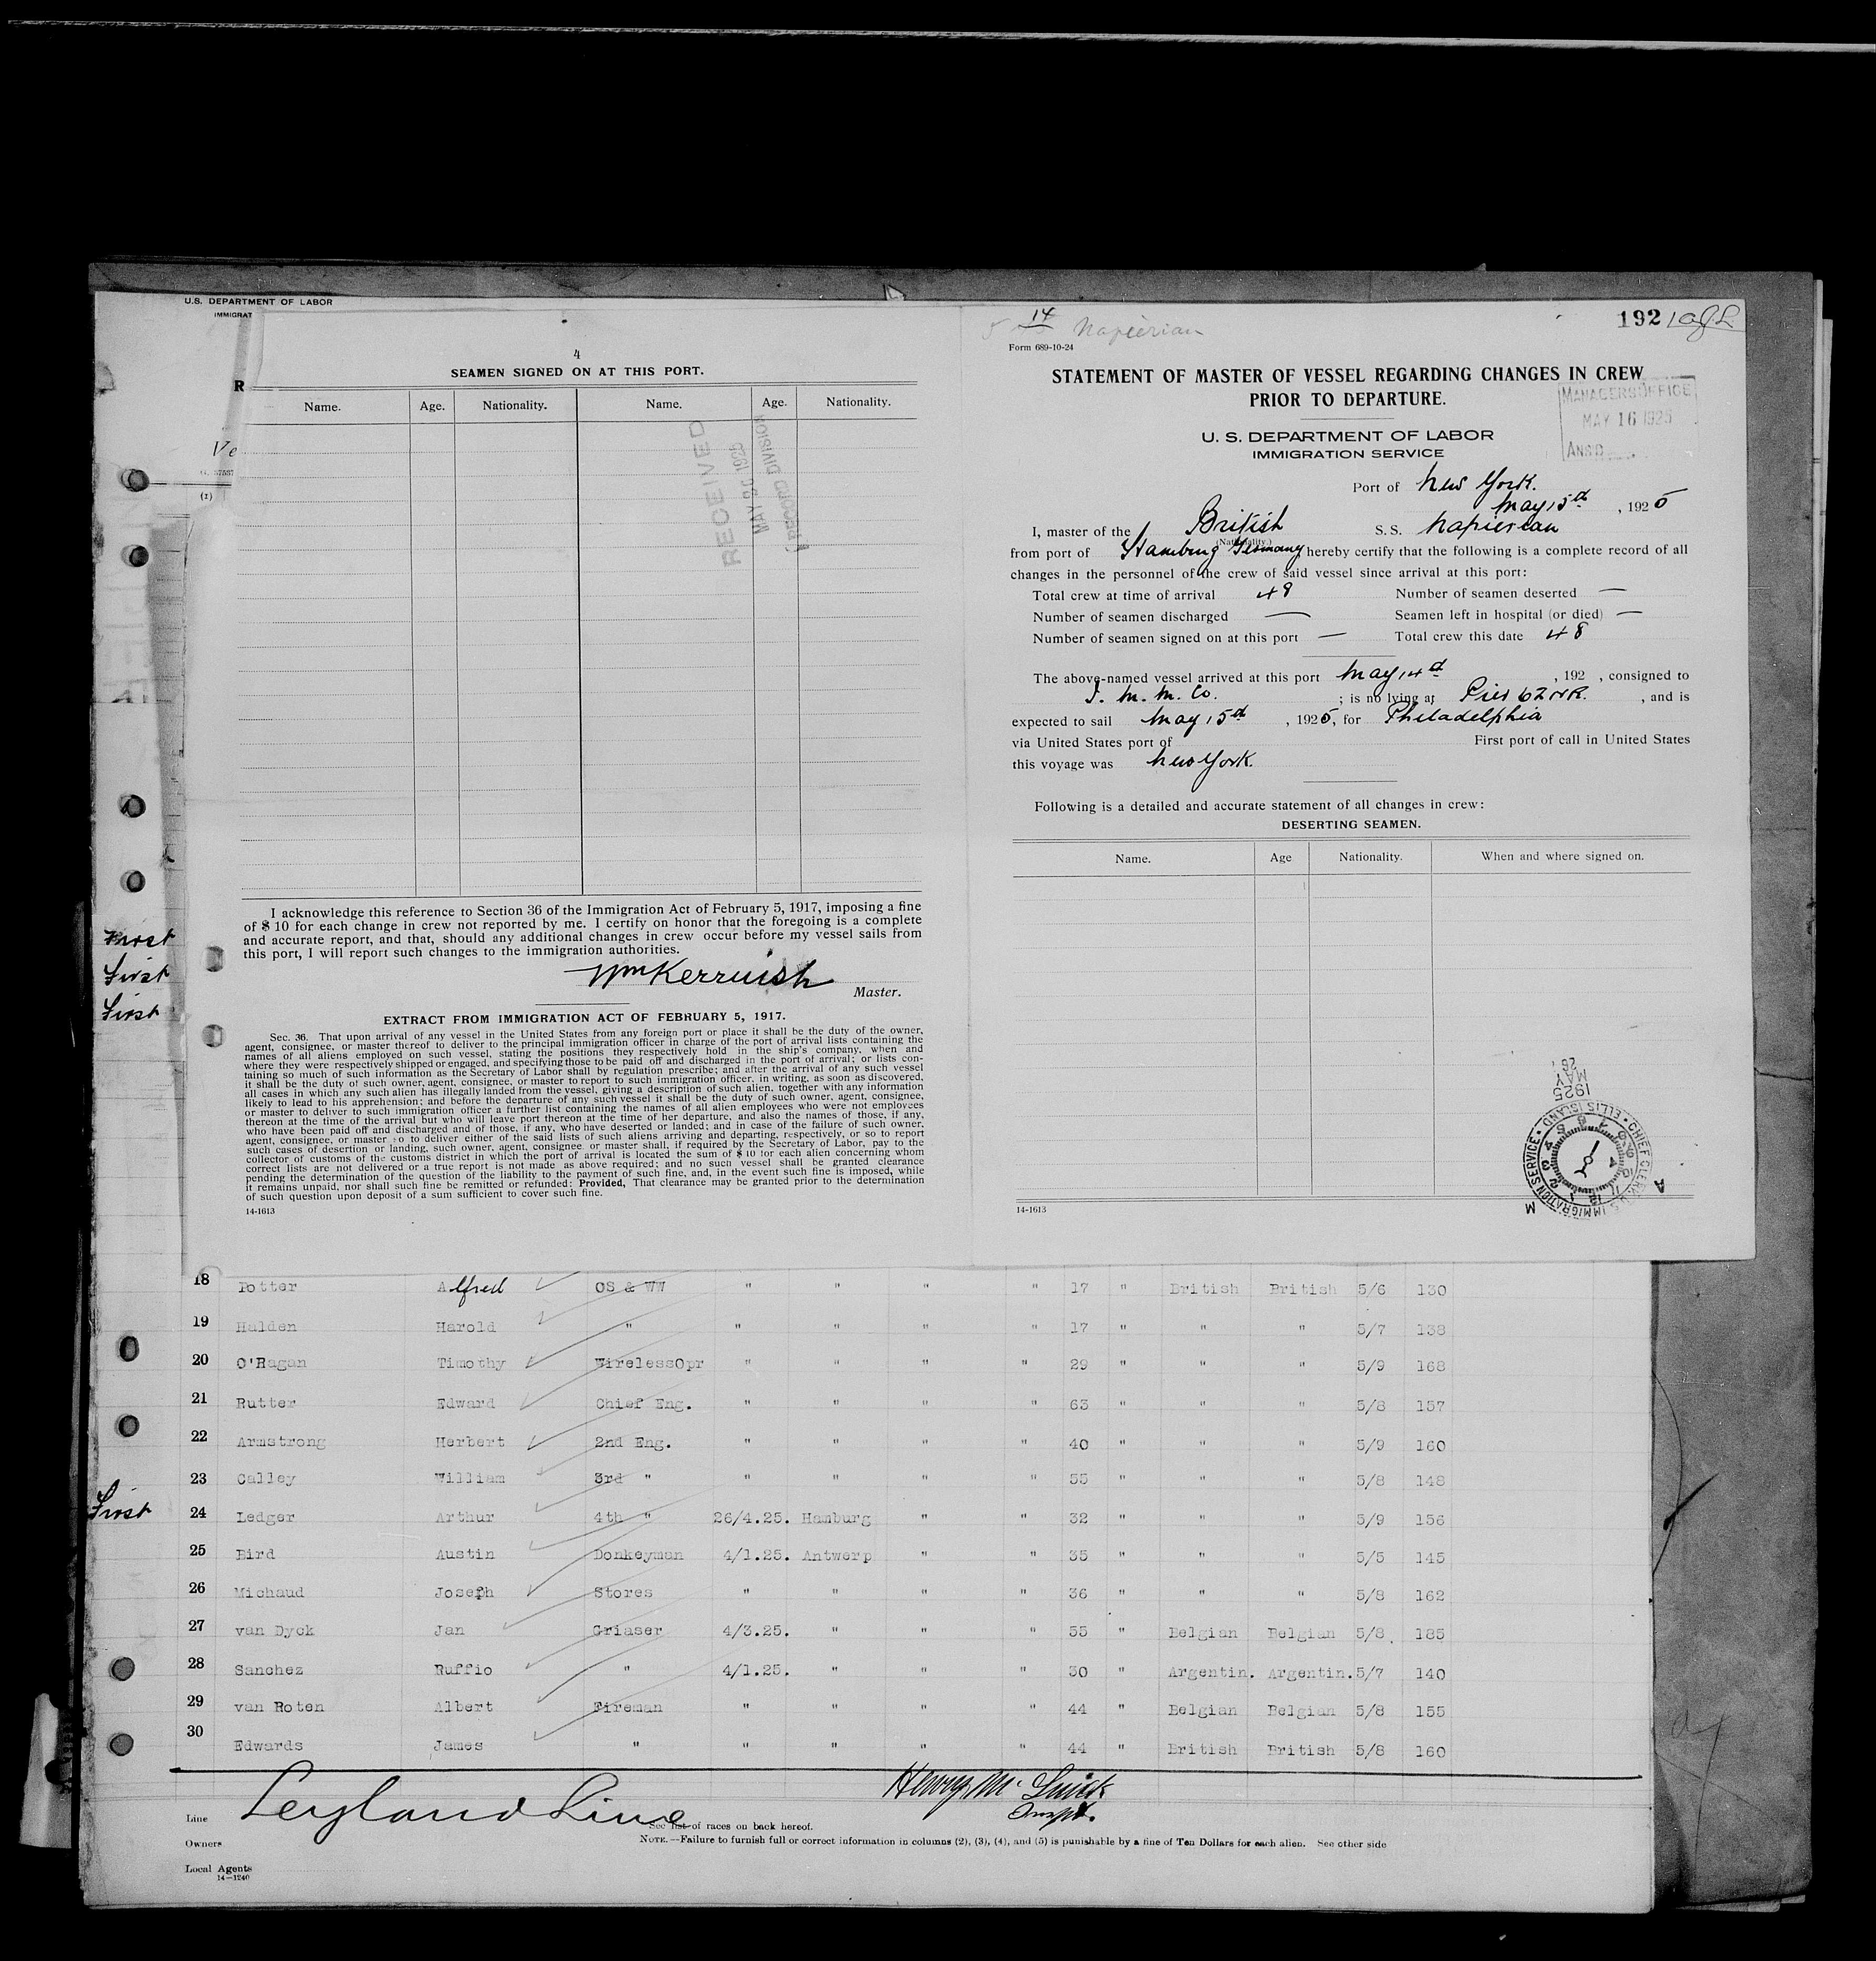 U.S. DEPARTMENT OF LABOR
IMMIGRAT
R
Ve
(1)
4
SEAMEN SIGNED ON AT THIS PORT.
Name. Age. Nationality. Name. Age. Nationality.
RECEIVED
MAY 1925
RECORD DIVISION
I acknowledge this reference to Section 36 of the Immigration Act of February 5, 1917, imposing a fine
of $10 for each change in crew not reported by me. I certify on honor that the foregoing is a complete
and accurate report, and that, should any additional changes in crew occur before my vessel sails from
this port, I will report such changes to the immigration authorities.
Wm Kerruish
Master.
EXTRACT FROM IMMIGRATION ACT OF FEBRUARY 5, 1917.
Sec. 36. That upon arrival of any vessel in the United States from any foreign port or place it shall be the duty of the owner,
agent, consignee, or master thereof to deliver to the principal immigration officer in charge of the port of arrival lists containing the
names of all aliens employed on such vessel, stating the positions they respectively hold in the ship's company, when and
where they were respectively shipped or engaged, and specifying those to be paid off and discharged in the port of arrival; or lists con-
taining so much of such information as the Secretary of Labor shall by regulation prescribe; and after the arrival of any such vessel
it shall be the duty of such owner, agent, consignee, or master to report to such immigration officer, in writing, as soon as discovered,
all cases in which any such alien has illegally landed from the vessel, giving a description of such alien, together with any information
likely to lead to his apprehension; and before the departure of any such vessel it shall be the duty of such owner, agent, consignee,
or master to deliver to such immigration officer a further list containing the names of all alien employees who were not employees
thereon at the time of the arrival but who will leave port thereon at the time of her departure, and also the names of those, if any,
who have been paid off and discharged and of those, if any, who have deserted or landed; and in case of the failure of such owner,
agent, consignee, or master so to deliver either of the said lists of such aliens arriving and departing, respectively, or so to report
such cases of desertion or landing, such owner, agent, consignee or master shall, if required by the Secretary of Labor, pay to the
collector of customs of the customs district in which the port of arrival is located the sum of $10 for each alien concerning whom
correct lists are not delivered or a true report is not made as above required; and no such vessel shall be granted clearance
pending the determination of the question of the liability to the payment of such fine, and, in the event such fine is imposed, while
it remains unpaid, nor shall such fine be remitted or refunded: Provided, That clearance may be granted prior to the determination
of such question upon deposit of a sum sufficient to cover such fine.
14-1613
14
Napierian
192
Form 689-10-24
STATEMENT OF MASTER OF VESSEL REGARDING CHANGES IN CREW
PRIOR TO DEPARTURE.
MANAGERS OFFICE
MAY 16 1925
ANS'D
U. S. DEPARTMENT OF LABOR
IMMIGRATION SERVICE
Port of New York.
May 15th, 1925
I, master of the British S.S. Napierian
(Nationality.)
from port of Hamburg Germany hereby certify that the following is a complete record of all
changes in the personnel of the crew of said vessel since arrival at this port:
Total crew at time of arrival 48 Number of seamen deserted —
Number of seamen discharged — Seamen left in hospital (or died) —
Number of seamen signed on at this port — Total crew this date 48
The above-named vessel arrived at this port May 14th, 192 , consigned to
I. M. M. Co. ; is no lying at Pier 62 NR. , and is
expected to sail May 15th, 1925, for Philadelphia
via United States port of First port of call in United States
this voyage was New York.
Following is a detailed and accurate statement of all changes in crew:
DESERTING SEAMEN.
Name. Age Nationality. When and where signed on.
1925 MAY 26
CHIEF CLERK U.S. IMMIGRATION SERVICE • ELLIS ISLAND •
14-1613
First
First
First
18 Potter Alfred OS & WW " " " " 17 " British British 5/6 130
19 Halden Harold " " " " " 17 " " " 5/7 138
20 O'Ragan Timothy WirelessOpr " " " " 29 " " " 5/9 168
21 Rutter Edward Chief Eng. " " " " 63 " " " 5/8 157
22 Armstrong Herbert 2nd Eng. " " " " 40 " " " 5/9 160
23 Calley William 3rd " " " " " 55 " " " 5/8 148
First 24 Ledger Arthur 4th " 26/4.25. Hamburg " " 32 " " " 5/9 156
25 Bird Austin Donkeyman 4/1.25. Antwerp " " 35 " " " 5/5 145
26 Michaud Joseph Stores " " " " 36 " " " 5/8 162
27 van Dyck Jan Griaser 4/3.25. " " " 55 " Belgian Belgian 5/8 185
28 Sanchez Ruffio " 4/1.25. " " " 30 " Argentin. Argentin. 5/7 140
29 van Roten Albert Fireman " " " " 44 " Belgian Belgian 5/8 155
30 Edwards James " " " " " 44 " British British 5/8 160
Line Leyland Line
Henry M.
Inspt.
See list of races on back hereof.
Owners
NOTE.—Failure to furnish full or correct information in columns (2), (3), (4), and (5) is punishable by a fine of Ten Dollars for each alien. See other side
Local Agents
14—1240